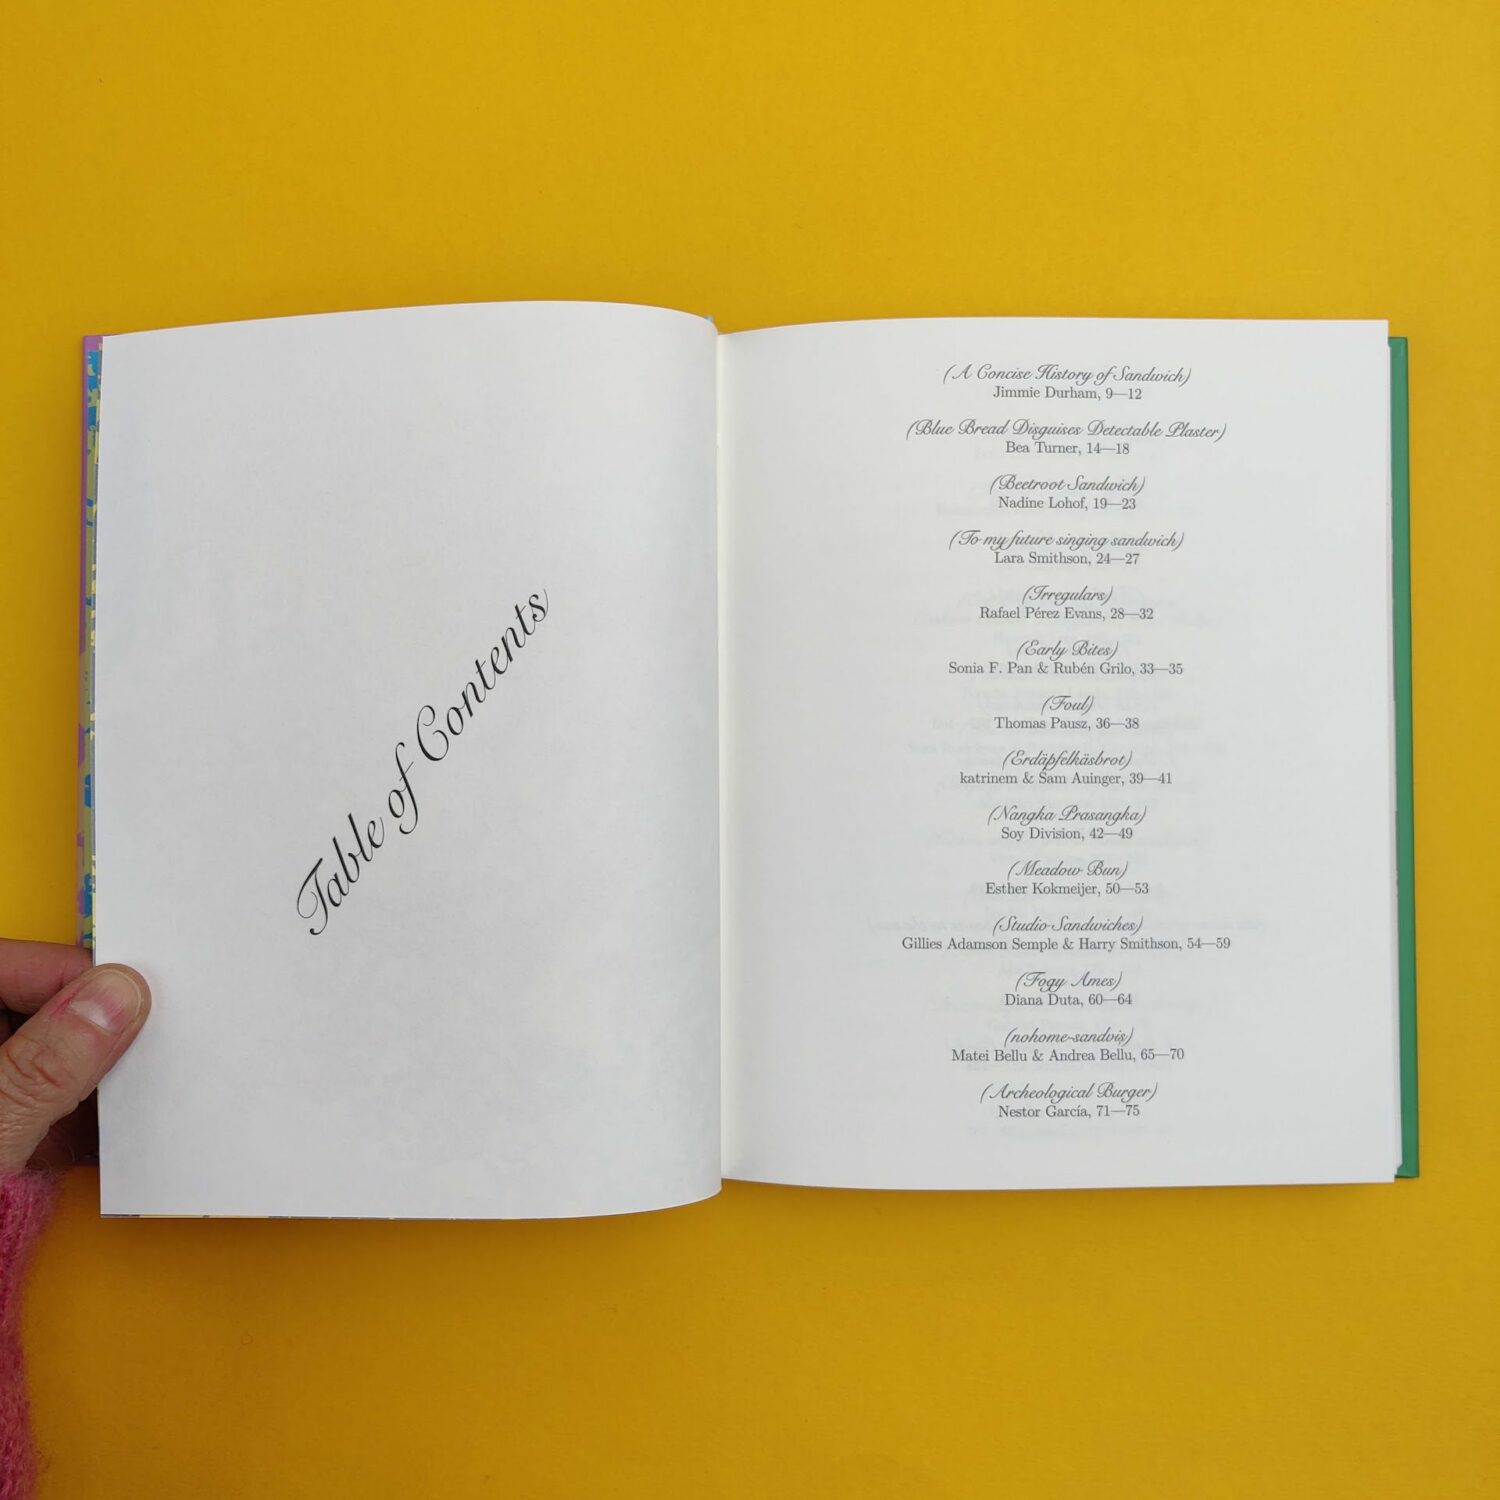 Table of Contents
(A Concise History of Sandwich)
Jimmie Durham, 9—12
(Blue Bread Disguises Detectable Plaster)
Bea Turner, 14—18
(Beetroot Sandwich)
Nadine Lohof, 19—23
(To my future singing sandwich)
Lara Smithson, 24—27
(Irregulars)
Rafael Pérez Evans, 28—32
(Early Bites)
Sonia F. Pan & Rubén Grilo, 33—35
(Foul)
Thomas Pausz, 36—38
(Erdäpfelkäsbrot)
katrinem & Sam Auinger, 39—41
(Nangka Prasangka)
Soy Division, 42—49
(Meadow Bun)
Esther Kokmeijer, 50—53
(Studio Sandwiches)
Gillies Adamson Semple & Harry Smithson, 54—59
(Fogy Ames)
Diana Duta, 60—64
(nohome-sandvis)
Matei Bellu & Andrea Bellu, 65—70
(Archeological Burger)
Nestor García, 71—75